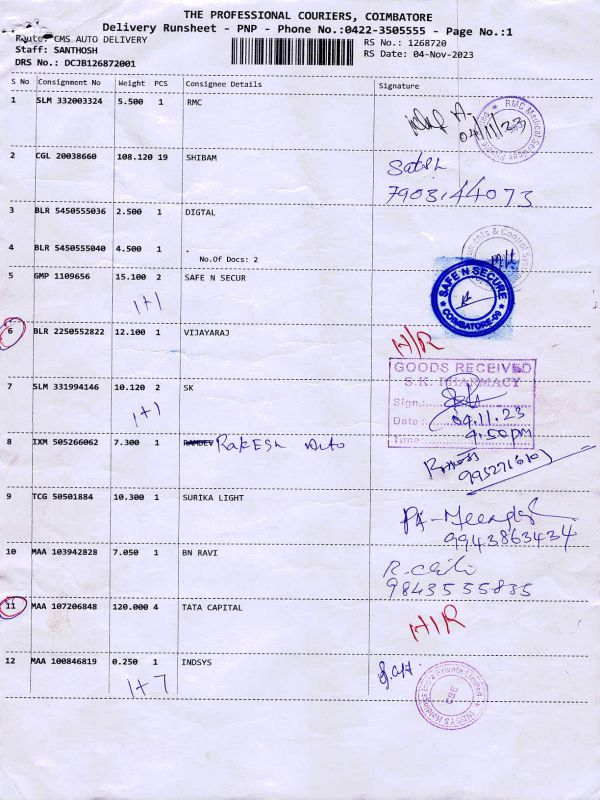 THE PROFESSIONAL COURIERS, COIMBATORE
Delivery Runsheet - PNP - Phone No.:0422-3505555 - Page No.:1
Route: CMS AUTO DELIVERY
RS No.: 1268720
Staff: SANTHOSH
RS Date: 04-Nov-2023
DRS No.: DCJB126872001
S No Consignment No Weight PCS Consignee Details Signature
1 SLM 332003324 5.500 1 RMC
04/11/23
RMC Medical Services
2 CGL 20038660 108.120 19 SHIBAM
Satish
7903144073
3 BLR 5450555036 2.500 1 DIGTAL
4 BLR 5450555040 4.500 1
No.Of Docs: 2
5 GMP 1109656 15.100 2 SAFE N SECUR
SAFE 'N SECURE
COIMBATORE-09
1+1
6 BLR 2250552822 12.100 1 VIJAYARAJ
H/R
GOODS RECEIVED
S.K. PHARMACY
7 SLM 331994146 10.120 2 SK
Sign.:
1+1
Date: 04.11.23
Time: 4.50pm
8 IXM 505266062 7.300 1 RAMDEV RAKESH Auto
9 TCG 50501884 10.300 1 SURIKA LIGHT
9943863434
10 MAA 103942828 7.050 1 BN RAVI
9843555835
11 MAA 107206848 120.000 4 TATA CAPITAL
H/R
12 MAA 100846819 0.250 1 INDSYS
1+7
CBE